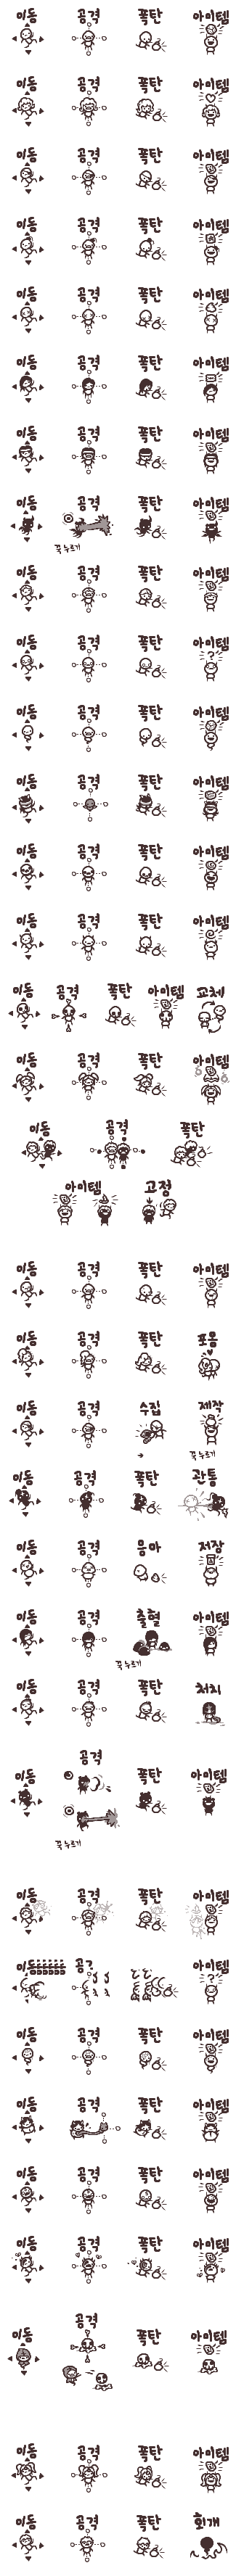 이동 공격 폭탄 아이템
이동 공격 폭탄 아이템
이동 공격 폭탄 아이템
이동 공격 폭탄 아이템
이동 공격 폭탄 아이템
이동 공격 폭탄 아이템
이동 공격 폭탄 아이템
이동 공격 폭탄 아이템
꾹 누르기
이동 공격 폭탄 아이템
이동 공격 폭탄 아이템
이동 공격 폭탄 아이템
이동 공격 폭탄 아이템
이동 공격 폭탄 아이템
이동 공격 폭탄 아이템
이동 공격 폭탄 아이템 교체
이동 공격 폭탄 아이템
이동 공격 폭탄
아이템 고정
이동 공격 폭탄 아이템
이동 공격 폭탄 포옹
이동 공격 수집 제작
꾹 누르기
이동 공격 폭탄 관통
이동 공격 응아 저장
이동 공격 출혈 아이템
꾹 누르기
이동 공격 폭탄 처치
공격
이동 폭탄 아이템
꾹 누르기
이동 공격 폭탄 아이템
이동 공? 아이템
이동 공격 폭탄 아이템
이동 공격 폭탄 아이템
이동 공격 폭탄 아이템
이동 공격 폭탄 아이템
이동 공격 폭탄 아이템
이동 공격 폭탄 아이템
이동 공격 폭탄 회개